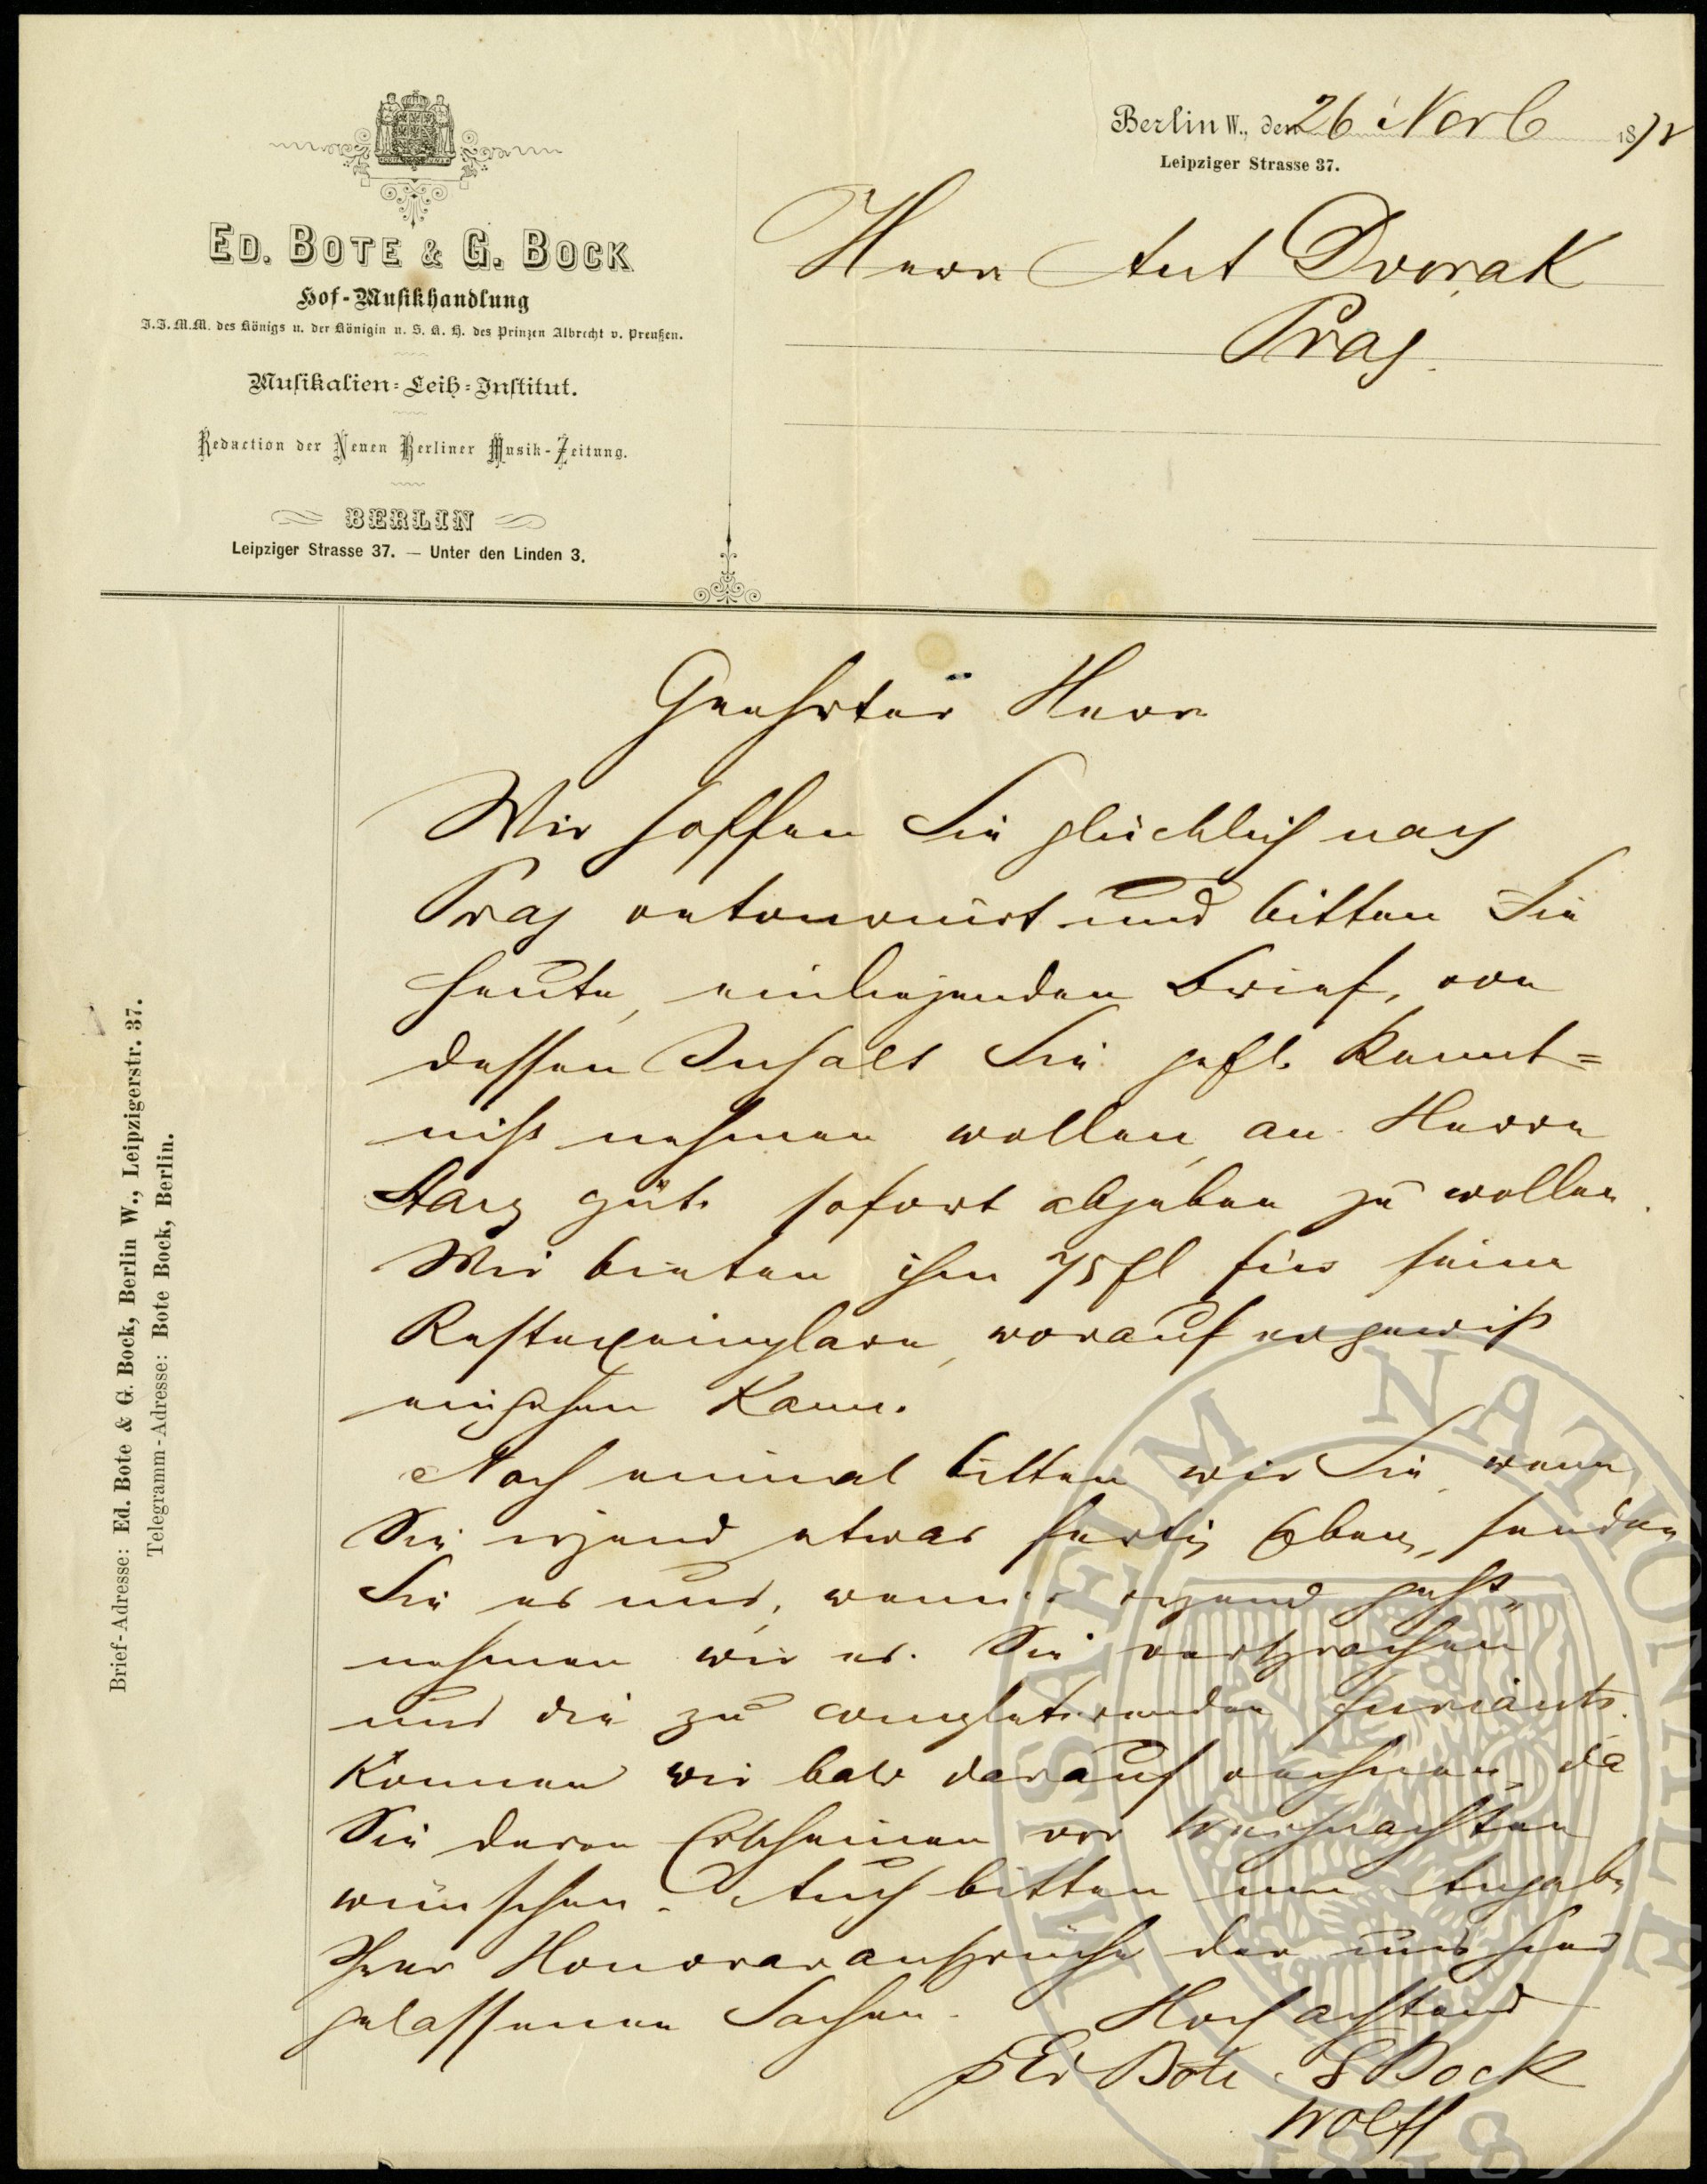 Berlin W., den 26 Novb 1878
Leipziger Strasse 37.
ED. BOTE & G. BOCK
Hof-Musikhandlung
J.J.M.M. des Königs u. der Königin u. S. K. H. des Prinzen Albrecht v. Preußen.
Musikalien-Leih-Institut.
Redaction der Neuen Berliner Musik-Zeitung.
BERLIN
Leipziger Strasse 37. — Unter den Linden 3.
Herrn Ant Dvorak
Prag.
Brief-Adresse: Ed. Bote & G. Bock, Berlin W., Leipzigerstr. 37.
Telegramm-Adresse: Bote Bock, Berlin.
Geehrter Herr
Wir hoffen Sie glücklich nach
Prag retournirt und bitten Sie
heute, einliegenden Brief, von
dessen Inhalt Sie gefl. Kennt=
niß nehmen wollen, an Herrn
Starý güt. sofort abgeben zu wollen.
Wir bieten ihm 75 fl für seine
Restexemplare, worauf er gewiß
eingehen kann.
Noch einmal bitten wir Sie, wenn
Sie irgend etwas fertig haben, senden
Sie es uns, wenn's irgend geht,
nehmen wir es. Sie versprachen
uns die zu completirenden Furiants.
Können wir bald darauf rechnen, da
Sie deren Erscheinen vor Weihnachten
wünschen. Auch bitten um Angabe
Ihrer Honoraransprüche der uns hier
gelassenen Sachen. Hochachtend
Ed Bote & G Bock
Wolff
MUSAEUM NATIONALE
1818